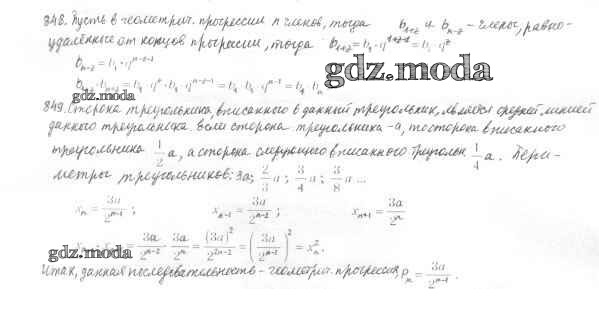 848. Пусть в геометрич. прогрессии n членов, тогда b_{1+z} и b_{n-z} - члены, равно-
удалённые от концов прогрессии, тогда b_{1+z} = b_1 · q^{1+z-1} = b_1 · q^z
b_{n-z} = b_1 · q^{n-z-1}
b_{1+z} · b_{n-z} = b_1 · q^z · b_1 · q^{n-z-1} = b_1 · b_1 · q^{n-1} = b_1 · b_n
gdz.moda
gdz.moda
849. Сторона треугольника, вписанного в данный треугольник, является средней линией
данного треугольника. Если сторона треугольника - a, то сторона вписанного
треугольника 1/2 a, а сторона следующего вписанного треугольн 1/4 a. Пери-
метры треугольников: 3a; 2/3 a; 3/4 a; 3/8 a ...
x_n = 3a/2^{n-1}; x_{n-1} = 3a/2^{n-2}; x_{n+1} = 3a/2^n
= 3a/2^{n-2} · 3a/2^n = (3a)^2/2^{2n-2} = (3a/2^{n-1})^2 = x_n^2.
gdz.moda
Итак, данная последовательность - геометрич. прогрессия, P_n = 3a/2^{n-1}.